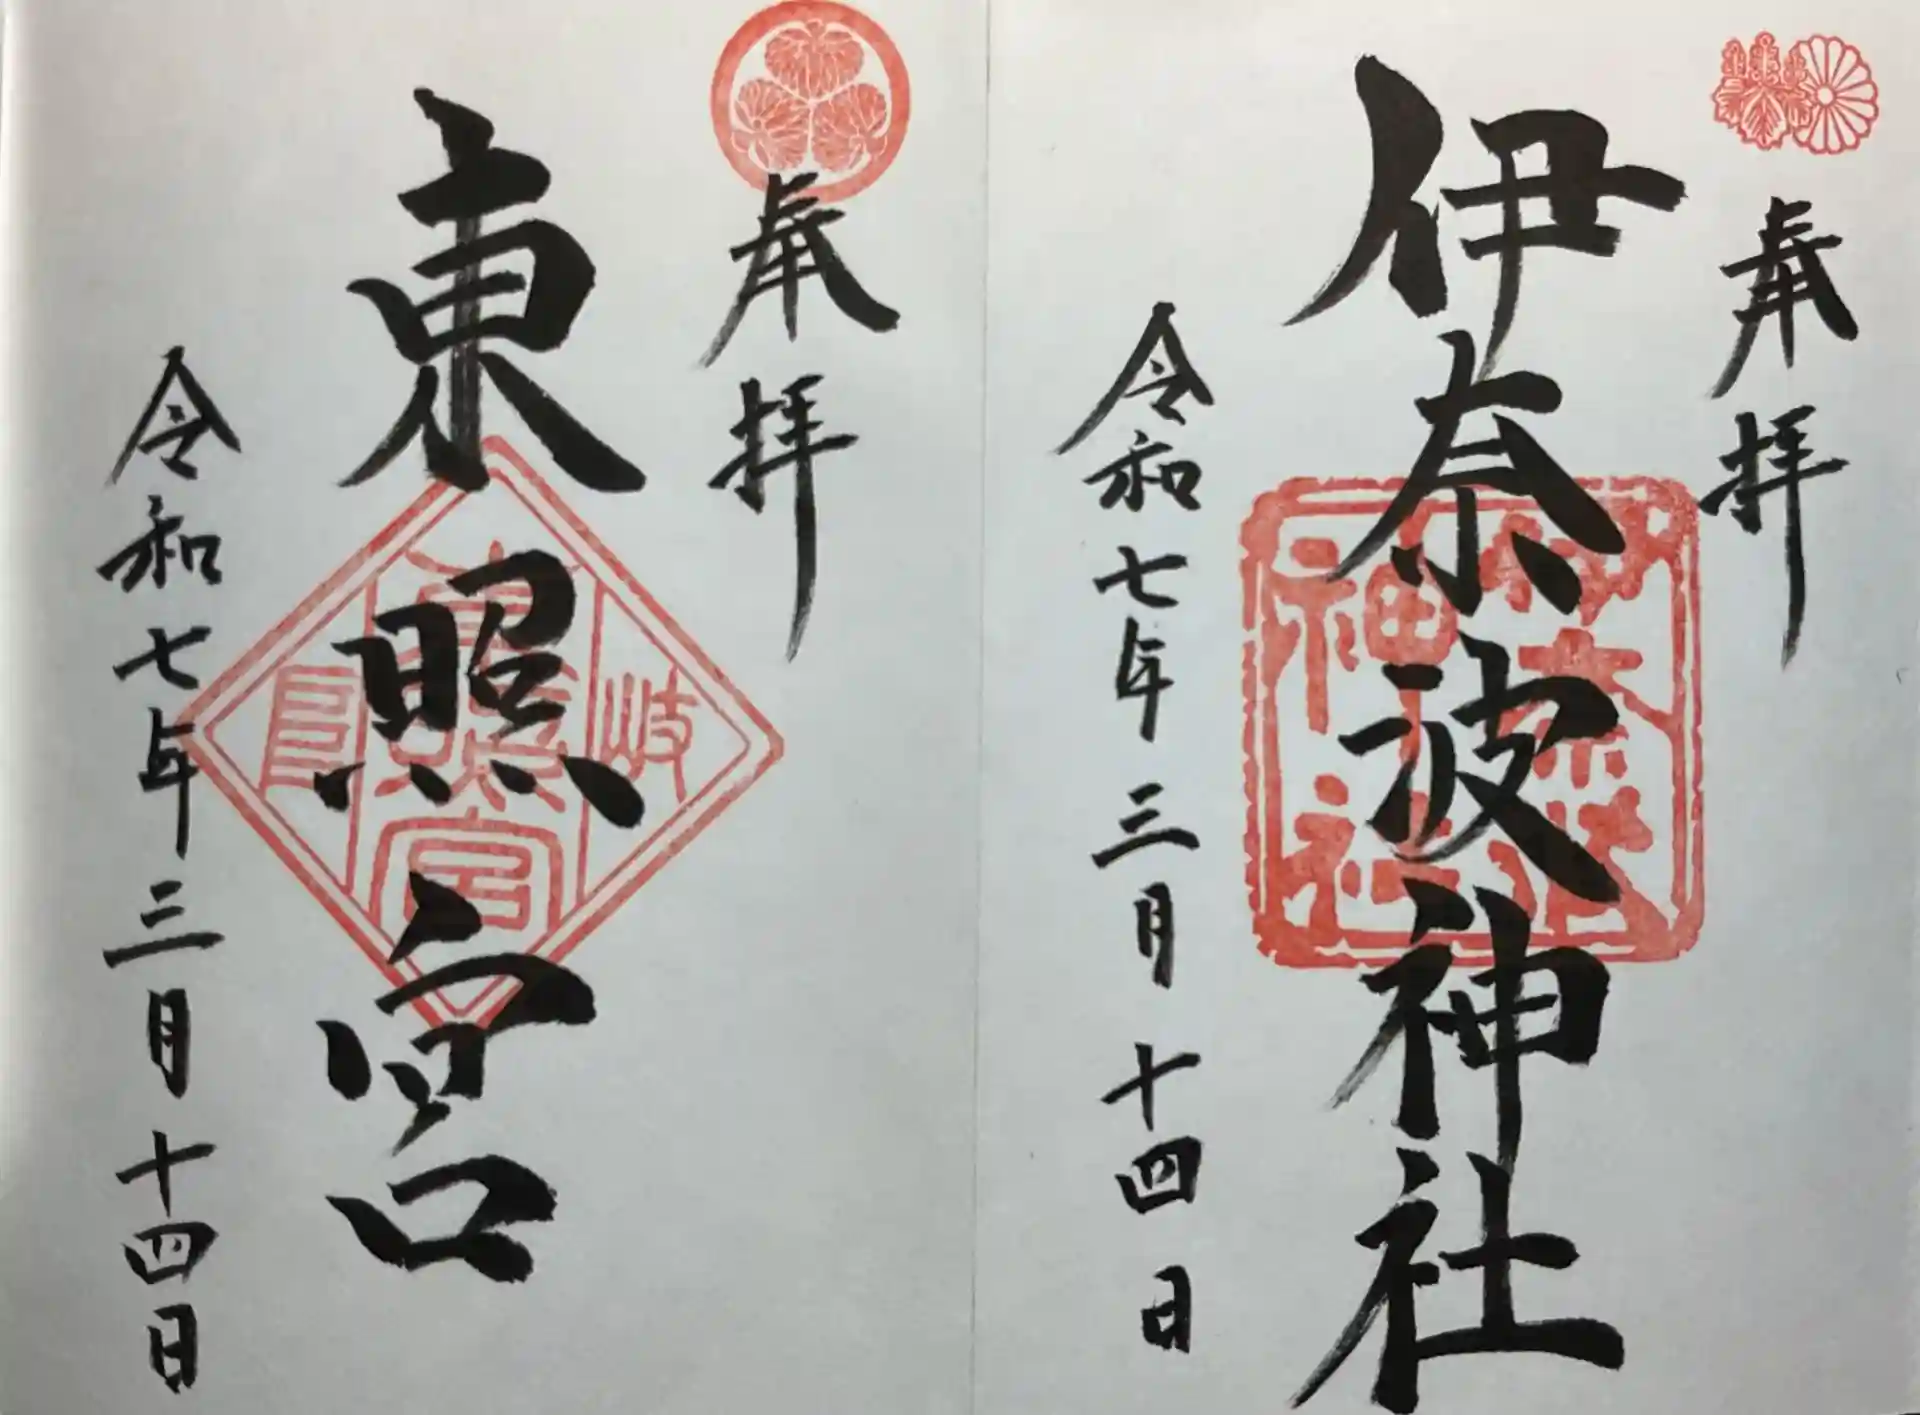 奉拝
伊奈波神社
伊奈波神社
令和七年三月十四日
奉拝
東照宮
岐阜
東照宮
令和七年三月十四日